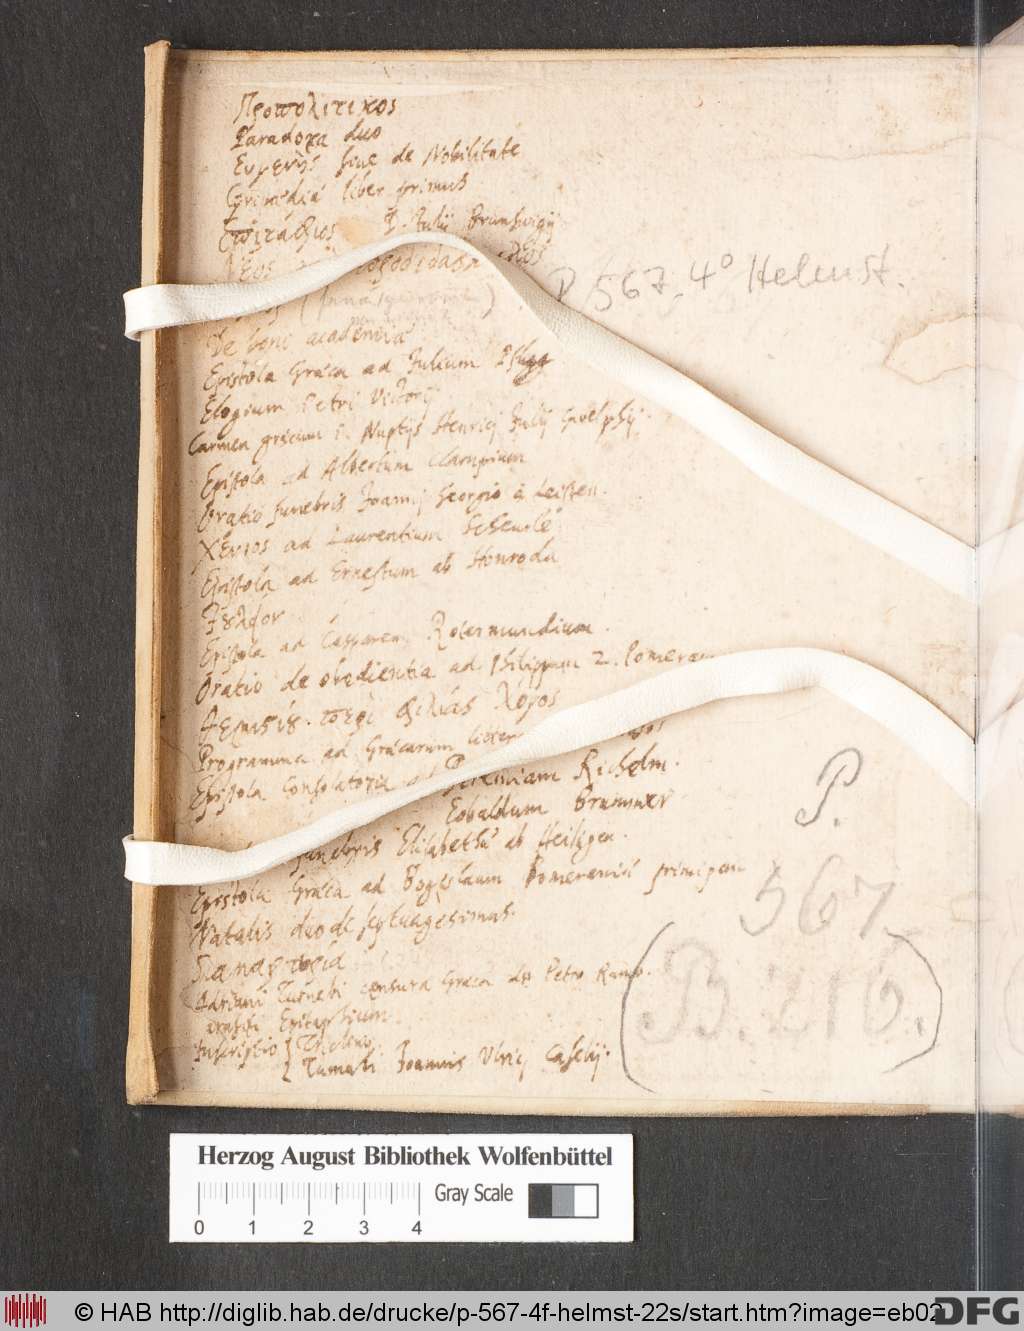 Προπολιτικος
Paradoxa duo
Ευγενὴς sive de Nobilitate
liber primus
Επιτάφιος D. Julij Brunsvigij
Νέος
P 567. 4° Helmst.
De boni academia
Epistola Graeca ad Julium Pflugg
Elogium Petri Victorij
Carmen graecum i. Nuptijs Henrici Julij Guelphij.
Epistola ad Albertum Clampium
Oratio funebris Joanni Georgio à Leissen.
Χενιος ad Laurentium Scheurle
Epistola ad Ernestum ab Honroda
Epistola ad Casparem Rotermundium.
Oratio de obedientia ad Philippum 2. Pomeran
περὶ φιλίας λόγος
Programma ad Graecarum litter
Epistola Consolatoria ad Richelm.
Eobaldum Brummer
funebris Elisabethae ab Heiligen.
Epistola Graeca ad Bogeslaum Pomeraniae principem
Natalis duode septuagesimus.
Adriani Turnebi censura Graeca de Petro Ramo.
Epitaphium
Inscriptio
Tumuli Joannis Ulrici Caselij.
P.
567
(B. 216.)
Herzog August Bibliothek Wolfenbüttel
Gray Scale
0 1 2 3 4
© HAB http://diglib.hab.de/drucke/p-567-4f-helmst-22s/start.htm?image=eb02
DFG